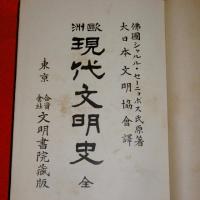 佛國シャルル・セーニョボス氏原著
大日本文明協會譯
歐洲
現代文明史 全
東京
合資會社
文明書院藏版